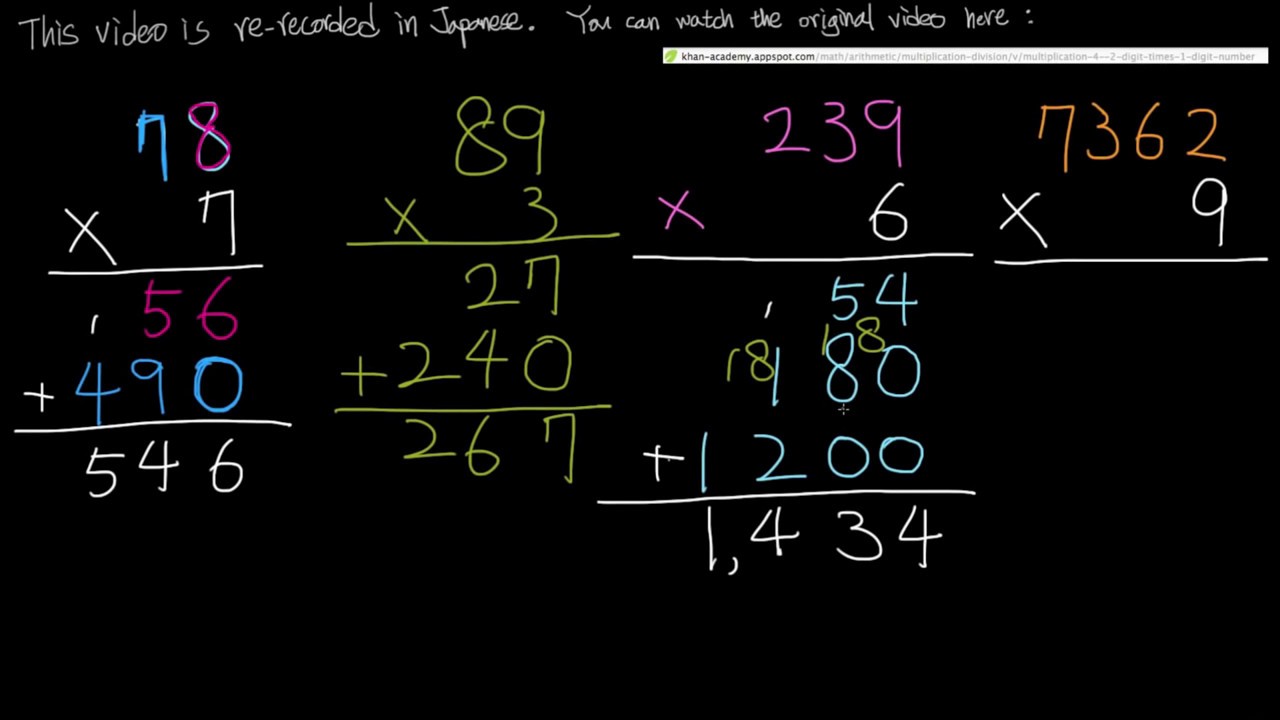 This video is re-recorded in Japanese. You can watch the original video here :
khan-academy.appspot.com/math/arithmetic/multiplication-division/v/multiplication-4--2-digit-times-1-digit-number
78
× 7
1
56
+ 490
546
89
× 3
27
+ 240
267
239
× 6
1
54
18 18
180
+ 1200
1,434
7362
× 9